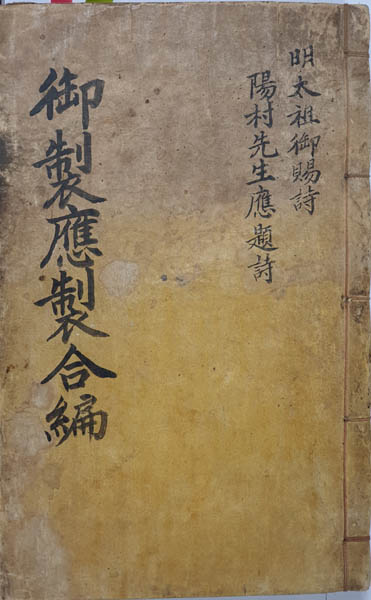 明太祖御賜詩
陽村先生應題詩
御製應製合編